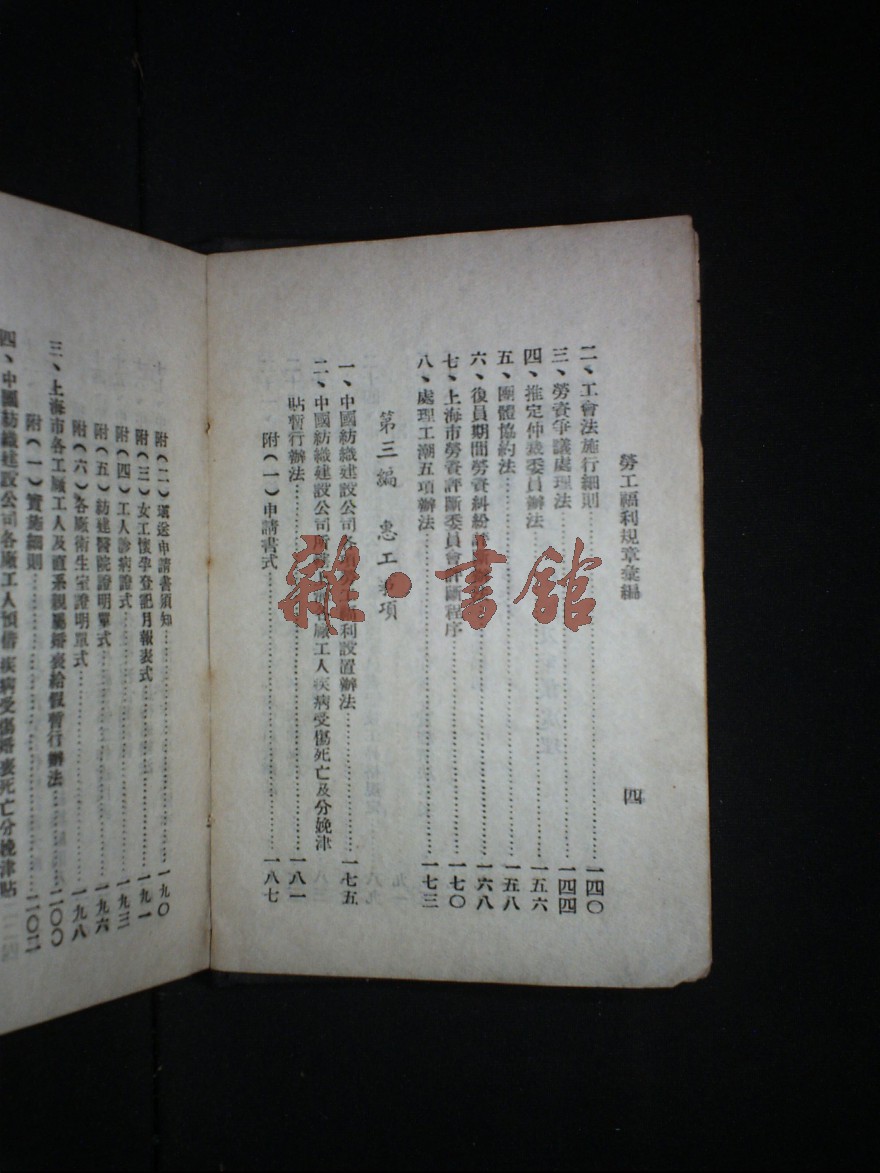 勞工福利規章彙編
四
二、工會法施行細則……一四〇
三、勞資爭議處理法……一四四
四、推定仲裁委員辦法……一五六
五、團體協約法……一五八
六、復員期間勞資糾紛……一六八
七、上海市勞資評斷委員會評斷程序……一七〇
八、處理工潮五項辦法……一七三
第三編 惠工事項
一、中國紡織建設公司各……利設置辦法……一七五
二、中國紡織建設公司所……各廠工人疾病受傷死亡及分娩津
貼暫行辦法……一八一
附(一)申請書式……一八七
附(二)填送申請書須知……一九〇
附(三)女工懷孕登記月報表式……一九一
附(四)工人診病證式……一九三
附(五)紡建醫院證明單式……一九六
附(六)各廠衛生室證明單式……一九八
三、上海市各工廠工人及直系親屬婚喪給假暫行辦法……二〇〇
附(一)實施細則……二〇二
四、中國紡織建設公司各廠工人預借疾病受傷婚喪死亡分娩津貼
雜·書館